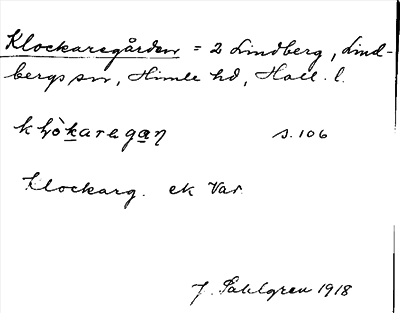 Klockaregården = 2 Lindberg, Lind-
bergs sn, Himle hd, Hall. l.
s. 106
Klockarg. ek Var.
J. Sahlgren 1918